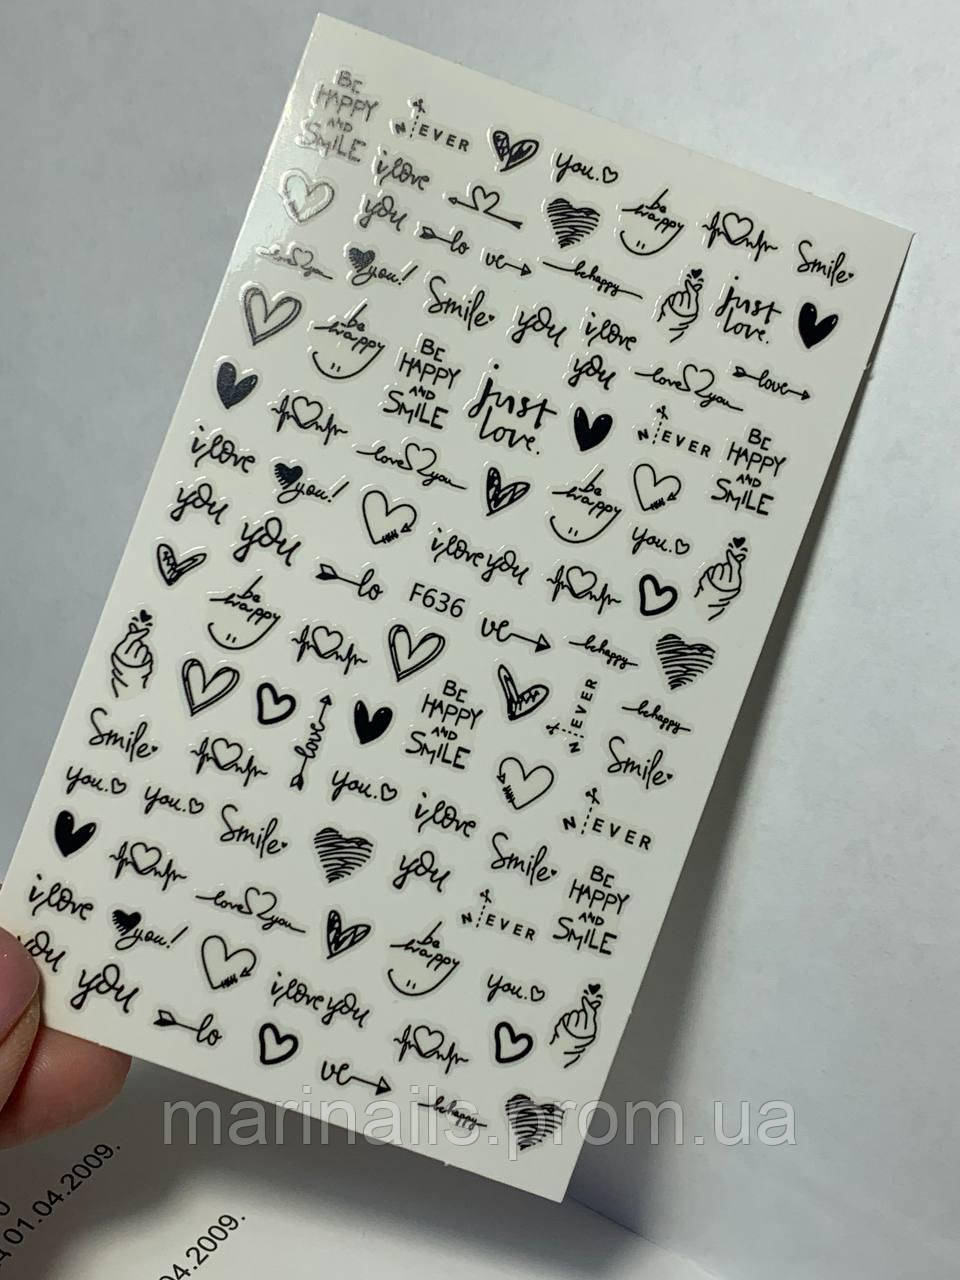 BE
HAPPY
AND
SMILE
NEVER
you.
i love
you
be
happy
Smile
love you
you!
lo
ve
be happy
just
love.
Smile
you
i love
you
be
happy
BE
HAPPY
AND
SMILE
just
love.
love you
love
NEVER
BE
HAPPY
AND
SMILE
i love
you
you!
love you
be
happy
you.
you
i love you
lo
F636
ve
be happy
be
happy
BE
HAPPY
AND
SMILE
NEVER
be happy
Smile
love
Smile
you.
you.
Smile
you.
i love
you
Smile
NEVER
BE
HAPPY
AND
SMILE
i love
you
you!
love you
NEVER
be
happy
you.
you
i love you
lo
ve
be happy
marinails.prom.ua
01.04.2009.
04.2009.